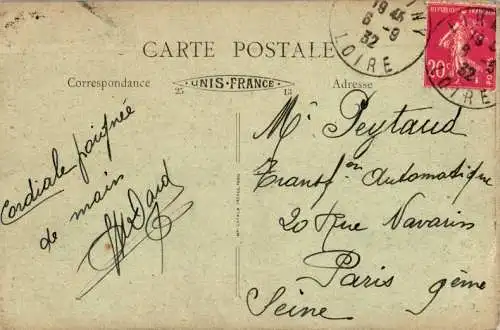 CARTE POSTALE
Correspondance
UNIS-FRANCE
Adresse
25
13
Cordiale poignée
de main
Mr Peytaud
Transf.on Automatique
20 Rue Navarin
Paris 9ème
Seine
19 45
6 -9
32
LOIRE
20c
LOIRE